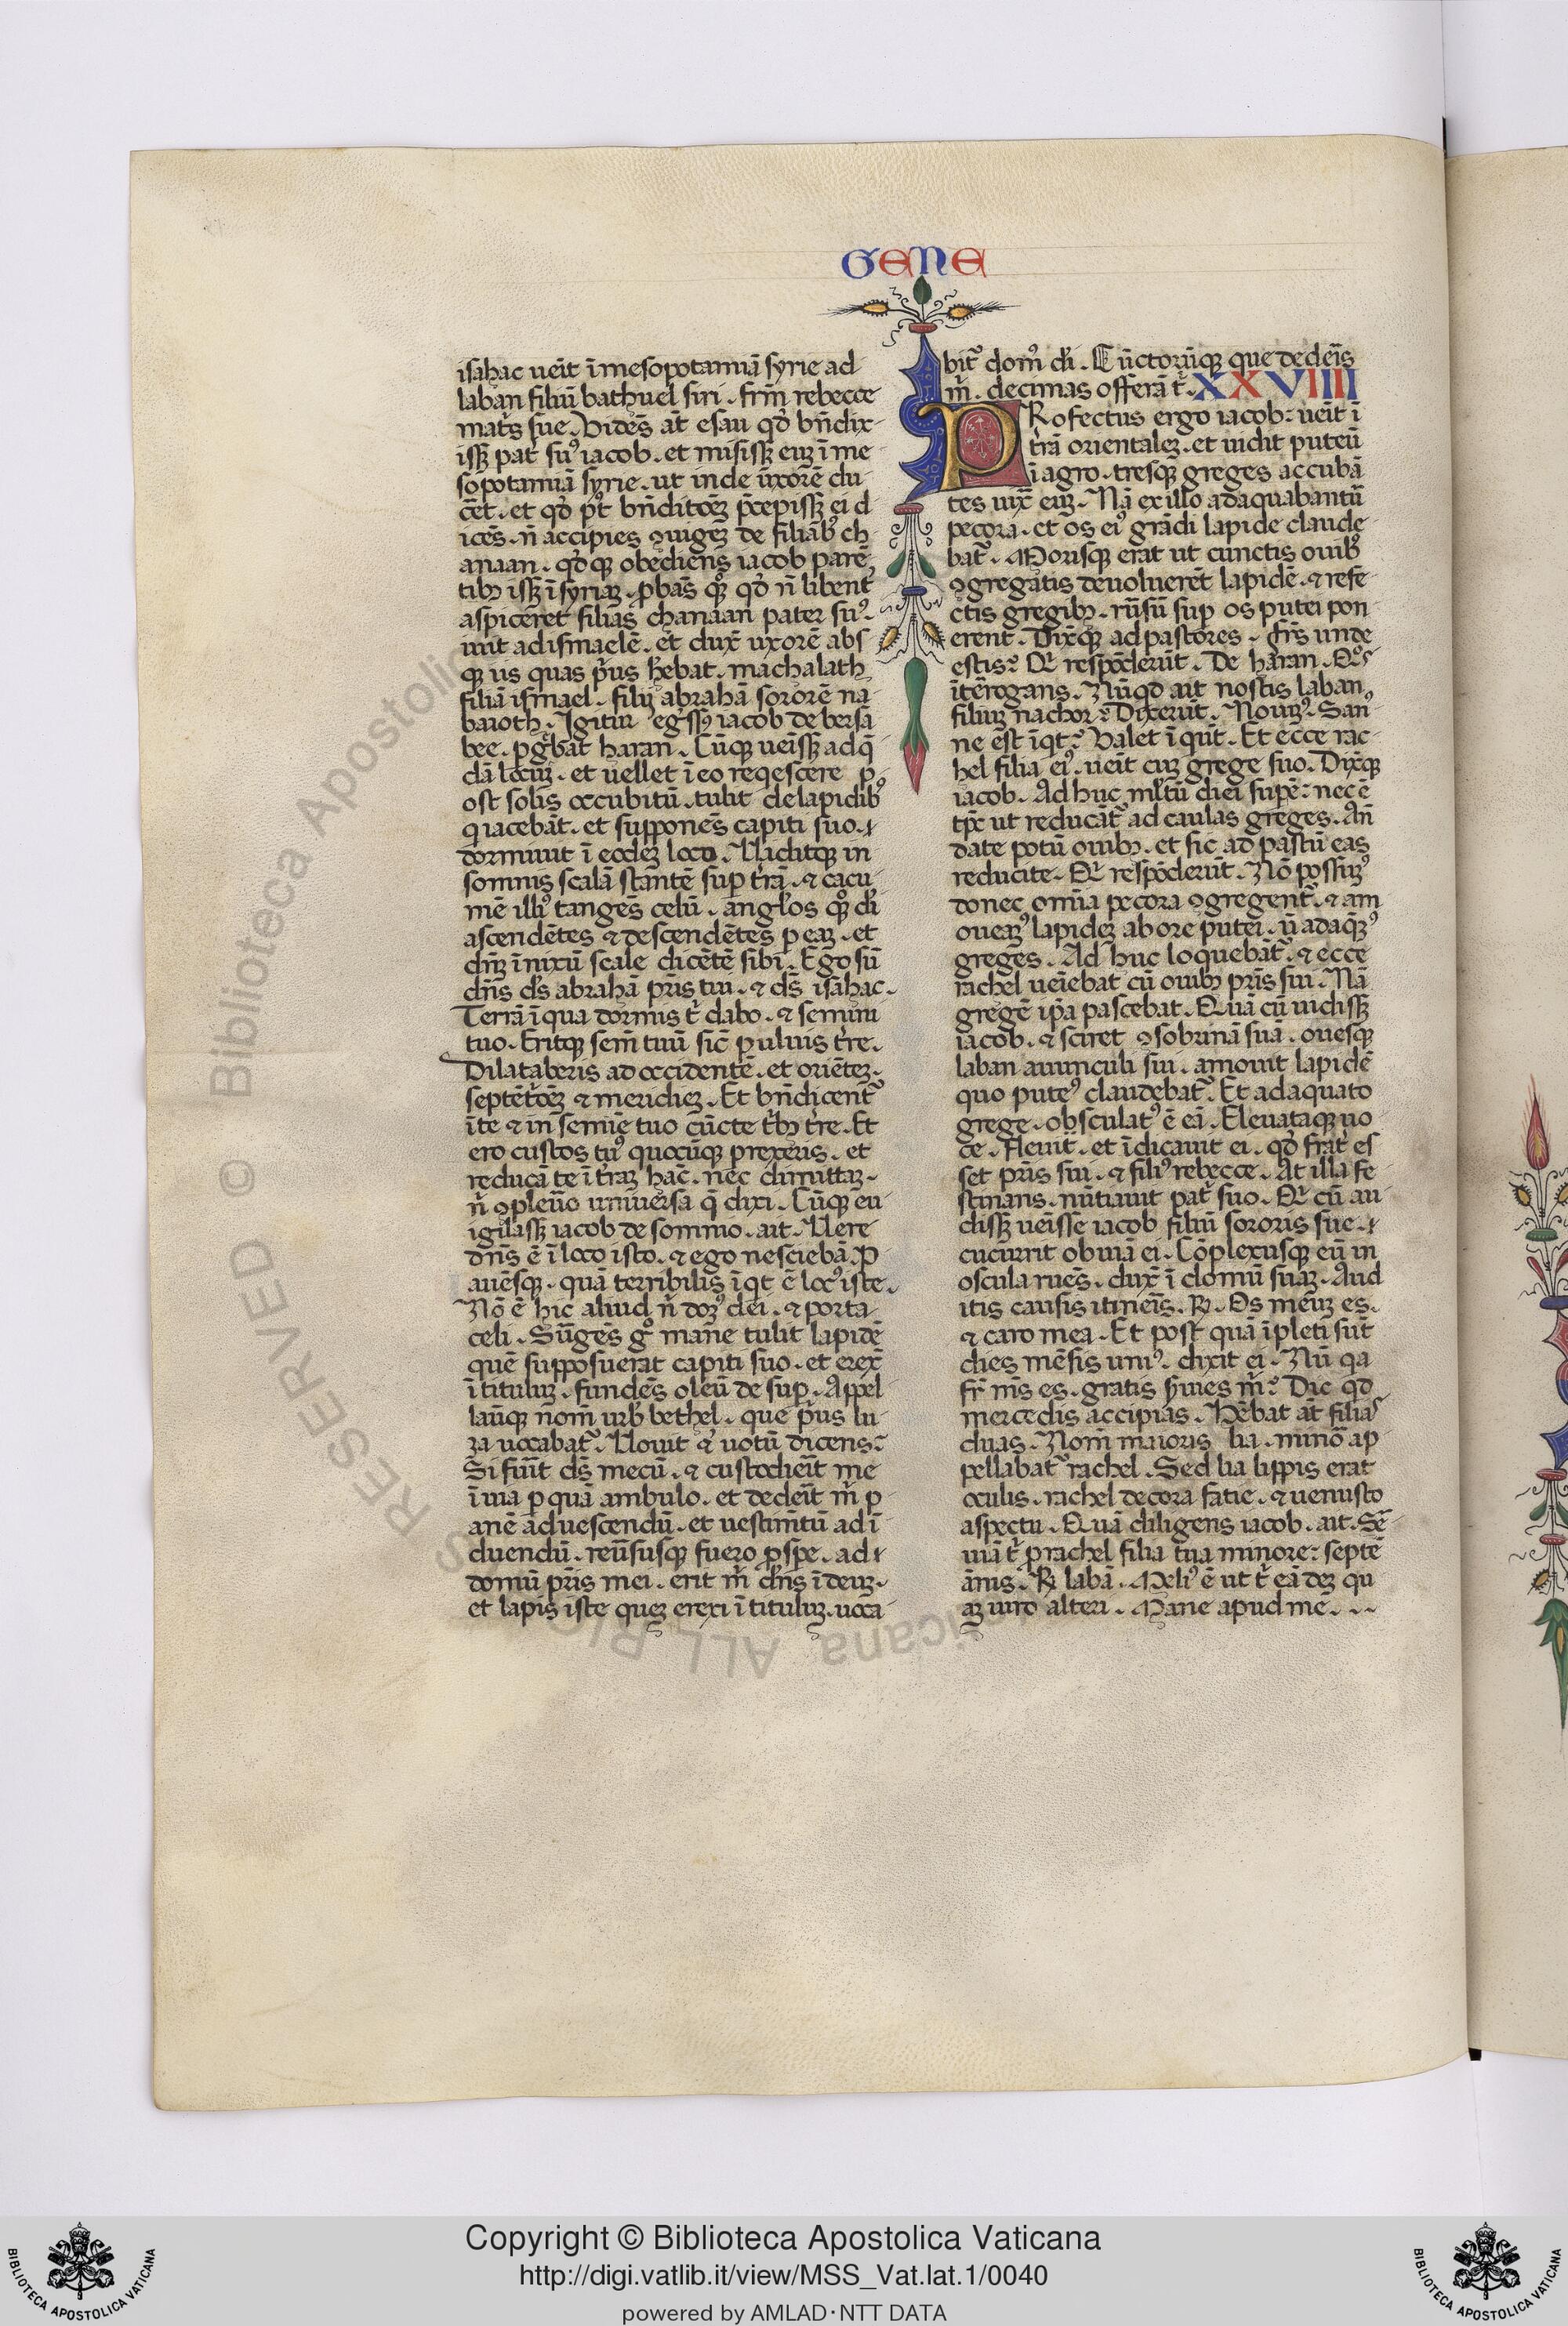 GENE
isahac ueīt ī mesopotamiā syrie ad
laban filiū bathuel siri . frm̄ rebecce
mat̉s sue . Vidēs āt esau qđ bn̄dix-
issꝫ pat̉ suꝰ iacob . et misissꝫ eūꝫ ī me
sopotamiā syrie . ut inde uxorē du-
cēt . et qđ pꝰt bn̄ditōēꝫ p̄cepissꝫ ei d
icēs . n̄ accipies ꝯiugēꝫ de filiabꝰ ch
anaan . qđqꝫ obediens iacob parē-
tibꝫ issꝫ ī syriaꝫ . ꝓbās qꝫ qđ n̄ libent̉
aspiceret filias chanaan pater suꝰ .
iuit ad ismaelē . et dux̄ uxorē abs
qꝫ iis quas p̉us h̄ebat . machalath
filiā ismael . filij abrahā sororē na-
baioth . Igitur eg̉ssꝰ iacob de bersa
bee . ꝑg̉bat haran . Cūqꝫ ueīssꝫ ad q̄
dā locūꝫ . et uellet ī eo reqescere p
ost solis occubitū . tulit de lapidibꝰ
q iacebāt . et supponēs capiti suo . ⁊
dormiuit ī eodeꝫ loco . Uiditqꝫ in
somnis scalā stantē suꝑ t̉rā . ⁊ cacu
mē illiꝰ tangēs celū . angl̄os qꝫ di
ascendētes ⁊ descendētes ꝑ eaꝫ . et
dn̄ꝫ īnixū scale dicētē sibi . Ego sū
dn̄s ds̄ abrahā pr̄is tui . ⁊ ds̄ isahac .
Terrā ī qua dormis t̉ dabo . ⁊ semini
tuo . Eritqꝫ sem̄ tuū sic̄ puluis t̉re .
Dilataberis ad occidentē . et oriētēꝫ .
septēt̉ōēꝫ ⁊ meridiēꝫ . Et bn̄dicent̉
īte ⁊ in semīe tuo cūcte t̉bꝫ t̉re . Et
ero custos tuꝰ quocūqꝫ prexeris . et
reducā te ī t̉raꝫ hac̄ . nec dimittaꝫ .
n̉ ꝯpleu̅o uniuersa q̄ dixi . Cūqꝫ eu
igilassꝫ iacob de somno . ait . Uere
dn̄s ē ī loco isto . ⁊ ego nesciebā . P
auēsqꝫ . quā terribilis īqt ē locꝰ iste .
Nō ē hic aliud n̉ domꝰ dei . ⁊ porta
celi . Sūgēs g̊ mane tulit lapidē
quē supposuerat capiti suo . et erex̄
ī titulūꝫ . fundēs oleū de suꝑ . Appel
lauqꝫ nom̄ urb̉ bethel . que p̉us lu-
za uocabat̉ . Uouit ⁊ uotū dicens :
Si fuīt ds̄ mecū . ⁊ custodieīt me
ī uia ꝑ quā ambulo . et dedeīt m̉ p
anē ad uescendū . et uestimtū ad ī
duendū . reūsusqꝫ fuero ꝓspe . ad ⁊
domū pr̄is mei . erit m̉ dn̄s ī deūꝫ .
et lapis iste queꝫ erexi ī titulūꝫ . uoca
bit̉ domꝰ di . Cūctorūqꝫ que dedeīs
m̉ . decimas offerā t̉ . XXVIIII
PRofectus ergo iacob : ueīt ī
t̉rā orientaleꝫ . et uidit puteū
ī agro . tresqꝫ greges accubā
tes iux̄ eūꝫ . Nā ex illo adaquabantū
pecora . et os eiꝰ grādi lapide claude
bat̉ . Morisqꝫ erat ut cunctis ouibꝰ
ꝯgregatis deuoluerēt lapidē . ⁊ refe-
ctis gregibꝫ . rūsū suꝑ os putei pon-
erent . Dix̄qꝫ ad pastores . frs̄ unde
estis ? Q̉ respōderūt . De haran . Qꝰˢ
īterogans . Nūqd ait nostis laban
filiūꝫ nachor ? Dixerūt . Nouimꝰ . San-
ne est īqt ? Valet īquīt . Et ecce rac-
hel filia eiꝰ . ueīt cūꝫ grege suo . Dix̄qꝫ
iacob . Ad huc ml̄tū diei supē : nec ē
tpꝫ ut reducāt̉ ad caulas greges . An̄
date potū ouibꝫ . et sic ad pastū eas
reducite . Q̉ respōderūt . Nō possumꝰ
donec omīa pecora ꝯgregent̉ . ⁊ am
oueamꝰ lapideꝫ ab ore putei . ū adaqmꝰ
greges . Ad huc loquebat̉ . ⁊ ecce
rachel ueīebat cū ouibꝫ pr̄is sui . Nā
gregē ip̄a pascebat . Quā cū uidissꝫ
iacob . ⁊ sciret ꝯsobrinā suā . ouesqꝫ
laban auunculi sui . amouit lapidē
quo puteꝰ claudebat̉ . Et adaquato
grege . obsculatꝰ ē eā . Eleuataqꝫ uo
ce . fleuit . et īdicauit ei . qđ frat̉ es
set pr̄is sui . ⁊ filiꝰ rebecce . At illa fe-
stinans . nūtiauit pat̉ suo . Q̉ cū au-
dissꝫ ueīsse iacob filiū sororis sue . ⁊
cucurrit obuiā ei . Cōplexusqꝫ eū in
oscula ruēs . dux̄ ī domū suāꝫ . Aud
itis causis itineīs . R̉ . Os meūꝫ es .
⁊ caro mea . Et post quā īpleti sūt
dies mēsis uniꝰ . dixit ei . Nū qa
fr̄ ms̄ es . gratis s̉uies m̉ ? Dic qd
mercedis accipias . Hēbat āt filiaˢ
duas . Nom̄ maioris lia . minō ap
pellabat̉ rachel . Sed lia lippis erat
oculis . rachel decora fatie . ⁊ uenusto
aspectu . Quā diligens iacob . ait . Sē-
uiā t̉ ꝓ rachel filia tua minore : septē
ānis . R̉ labā . Meliꝰ ē ut t̉ eā deꝫ qu
aꝫ uiro alteri . Mane apud mē . . .
© Biblioteca Apostolica Vaticana ALL RIGHTS RESERVED
Copyright © Biblioteca Apostolica Vaticana
http://digi.vatlib.it/view/MSS_Vat.lat.1/0040
powered by AMLAD·NTT DATA
BIBLIOTECA APOSTOLICA VATICANA
BIBLIOTECA APOSTOLICA VATICANA